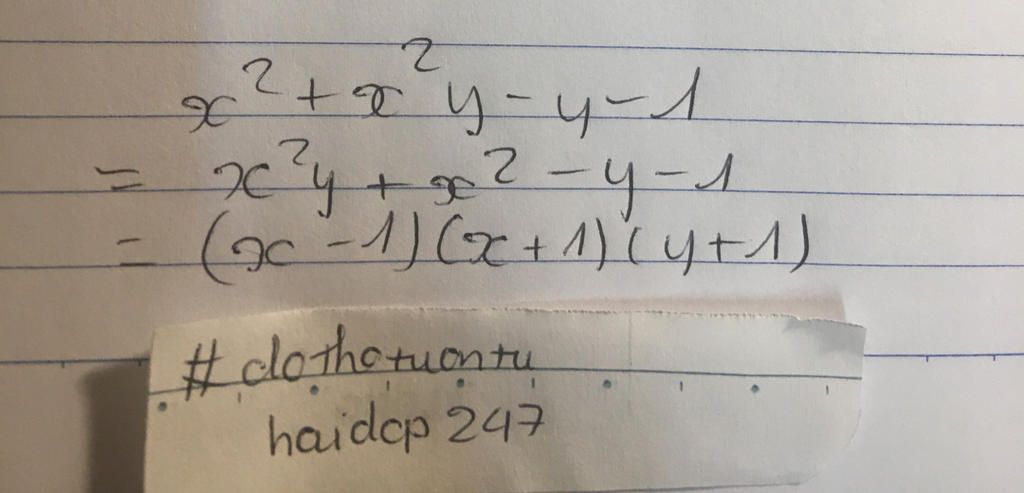 x² + x²y - y - 1
= x²y + x² - y - 1
= (x - 1)(x + 1)(y + 1)
# dothotuontu
haidcp 247